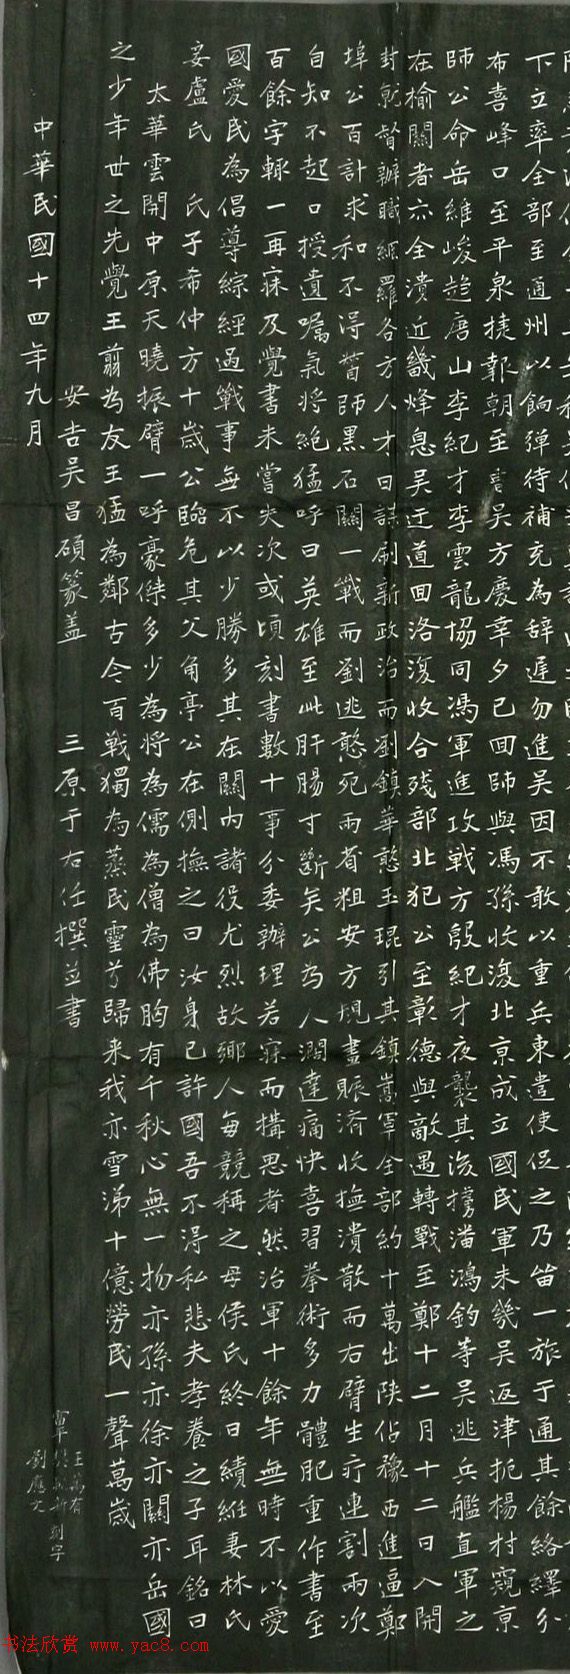 下立率全部至通州以餉彈待補充為辭遲勿進吴因不敢以重兵東遣使促之乃留一旅于通其餘絡繹分
布喜峰口至平泉捷報朝至吴方慶幸夕已回師與馮孫收復北京成立國民軍未幾吴返津扼楊村窺京
師公命岳維峻趋唐山李紀才李雲龍協同馮軍進攻戰方殷紀才夜襲其後擄潘鴻鈞等吴逃兵艦直軍之
在榆關者亦全潰近畿烽息吴迂道回洛復收合殘部北犯公至彰德與敵遇轉戰至鄭十二月十二日入開
封就督辦職網羅各方人才日謀刷新政治而劉鎮華憨玉琨引其鎮嵩軍全部約十萬出陝佔豫西進逼鄭
埠公百計求和不得誓師黑石關一戰而劉逃憨死兩省粗安方規畫賑濟收撫潰散而右臂生疔連割兩次
自知不起口授遺囑氣將絕猛呼曰英雄至此肝腸寸斷矣公為人濶達痛快喜習拳術多力體肥重作書至
百餘字輒一再寐及覺書未嘗失次或頃刻書數十事分委辦理若寐而搆思者然治軍十餘年無時不以愛
國愛民為倡導綜經過戰事無不以少勝多其在關內諸役尤烈故鄉人每競稱之母侯氏終日績絍妻林氏
妾盧氏 氏子希仲方十歲公臨危其父角亭公在側撫之曰汝身已許國吾不得私悲夫孝養之子耳銘曰
太華雲開中原天曉振臂一呼豪傑多少為將為儒為僧為佛胸有千秋心無一物亦孫亦徐亦關亦岳國
之少年世之先覺王翦為友王猛為鄰古今百戰獨為蒸民靈兮歸来我亦雪涕十億勞民一聲萬歲
安吉吴昌碩篆盖 三原于右任撰並書
中華民國十四年九月
王萬有
富平 刻字
劉應文
书法欣赏 www.yac8.com